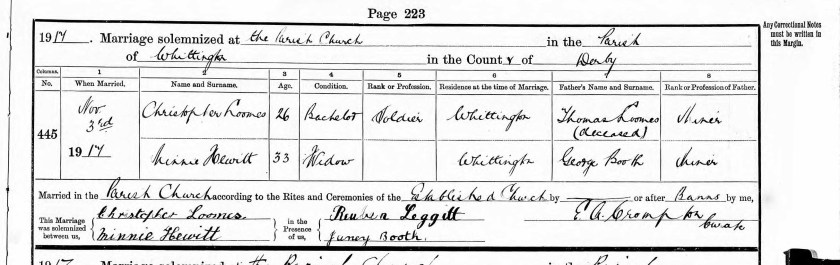 Page 223
Any Correctional Notes
must be written in
this Margin.
1917. Marriage solemnized at the Parish Church in the Parish
of Whittington in the County of Derby
Columns. 1 2 3 4 5 6 7 8
No. When Married. Name and Surname. Age. Condition. Rank or Profession. Residence at the time of Marriage. Father's Name and Surname. Rank or Profession of Father.
445 Nov. 3rd 1917 Christopher Loomes 26 Bachelor Soldier Whittington Thomas Loomes (deceased) Miner
Minnie Hewitt 33 Widow Whittington George Booth Miner
Married in the Parish Church according to the Rites and Ceremonies of the Established Church by or after Banns by me,
This Marriage was solemnized between us, Christopher Loomes Minnie Hewitt in the Presence of us, Reuben Leggitt Booth. E. A. Crompton Curate
1917 Marriage solemnized at the Parish Church in the Parish